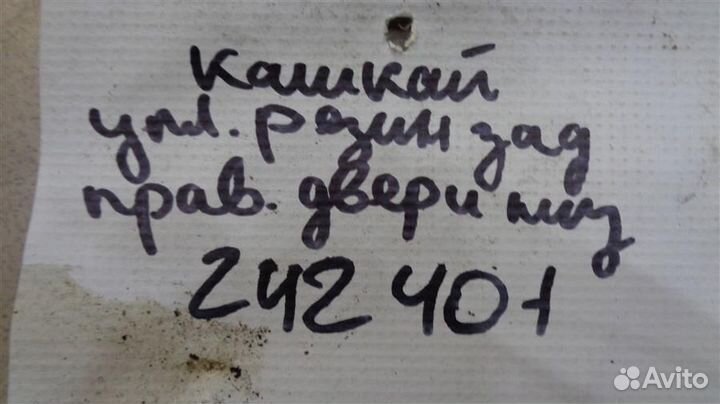 Кашкай
упл. резин зад
прав. двери низ
242401
Avito